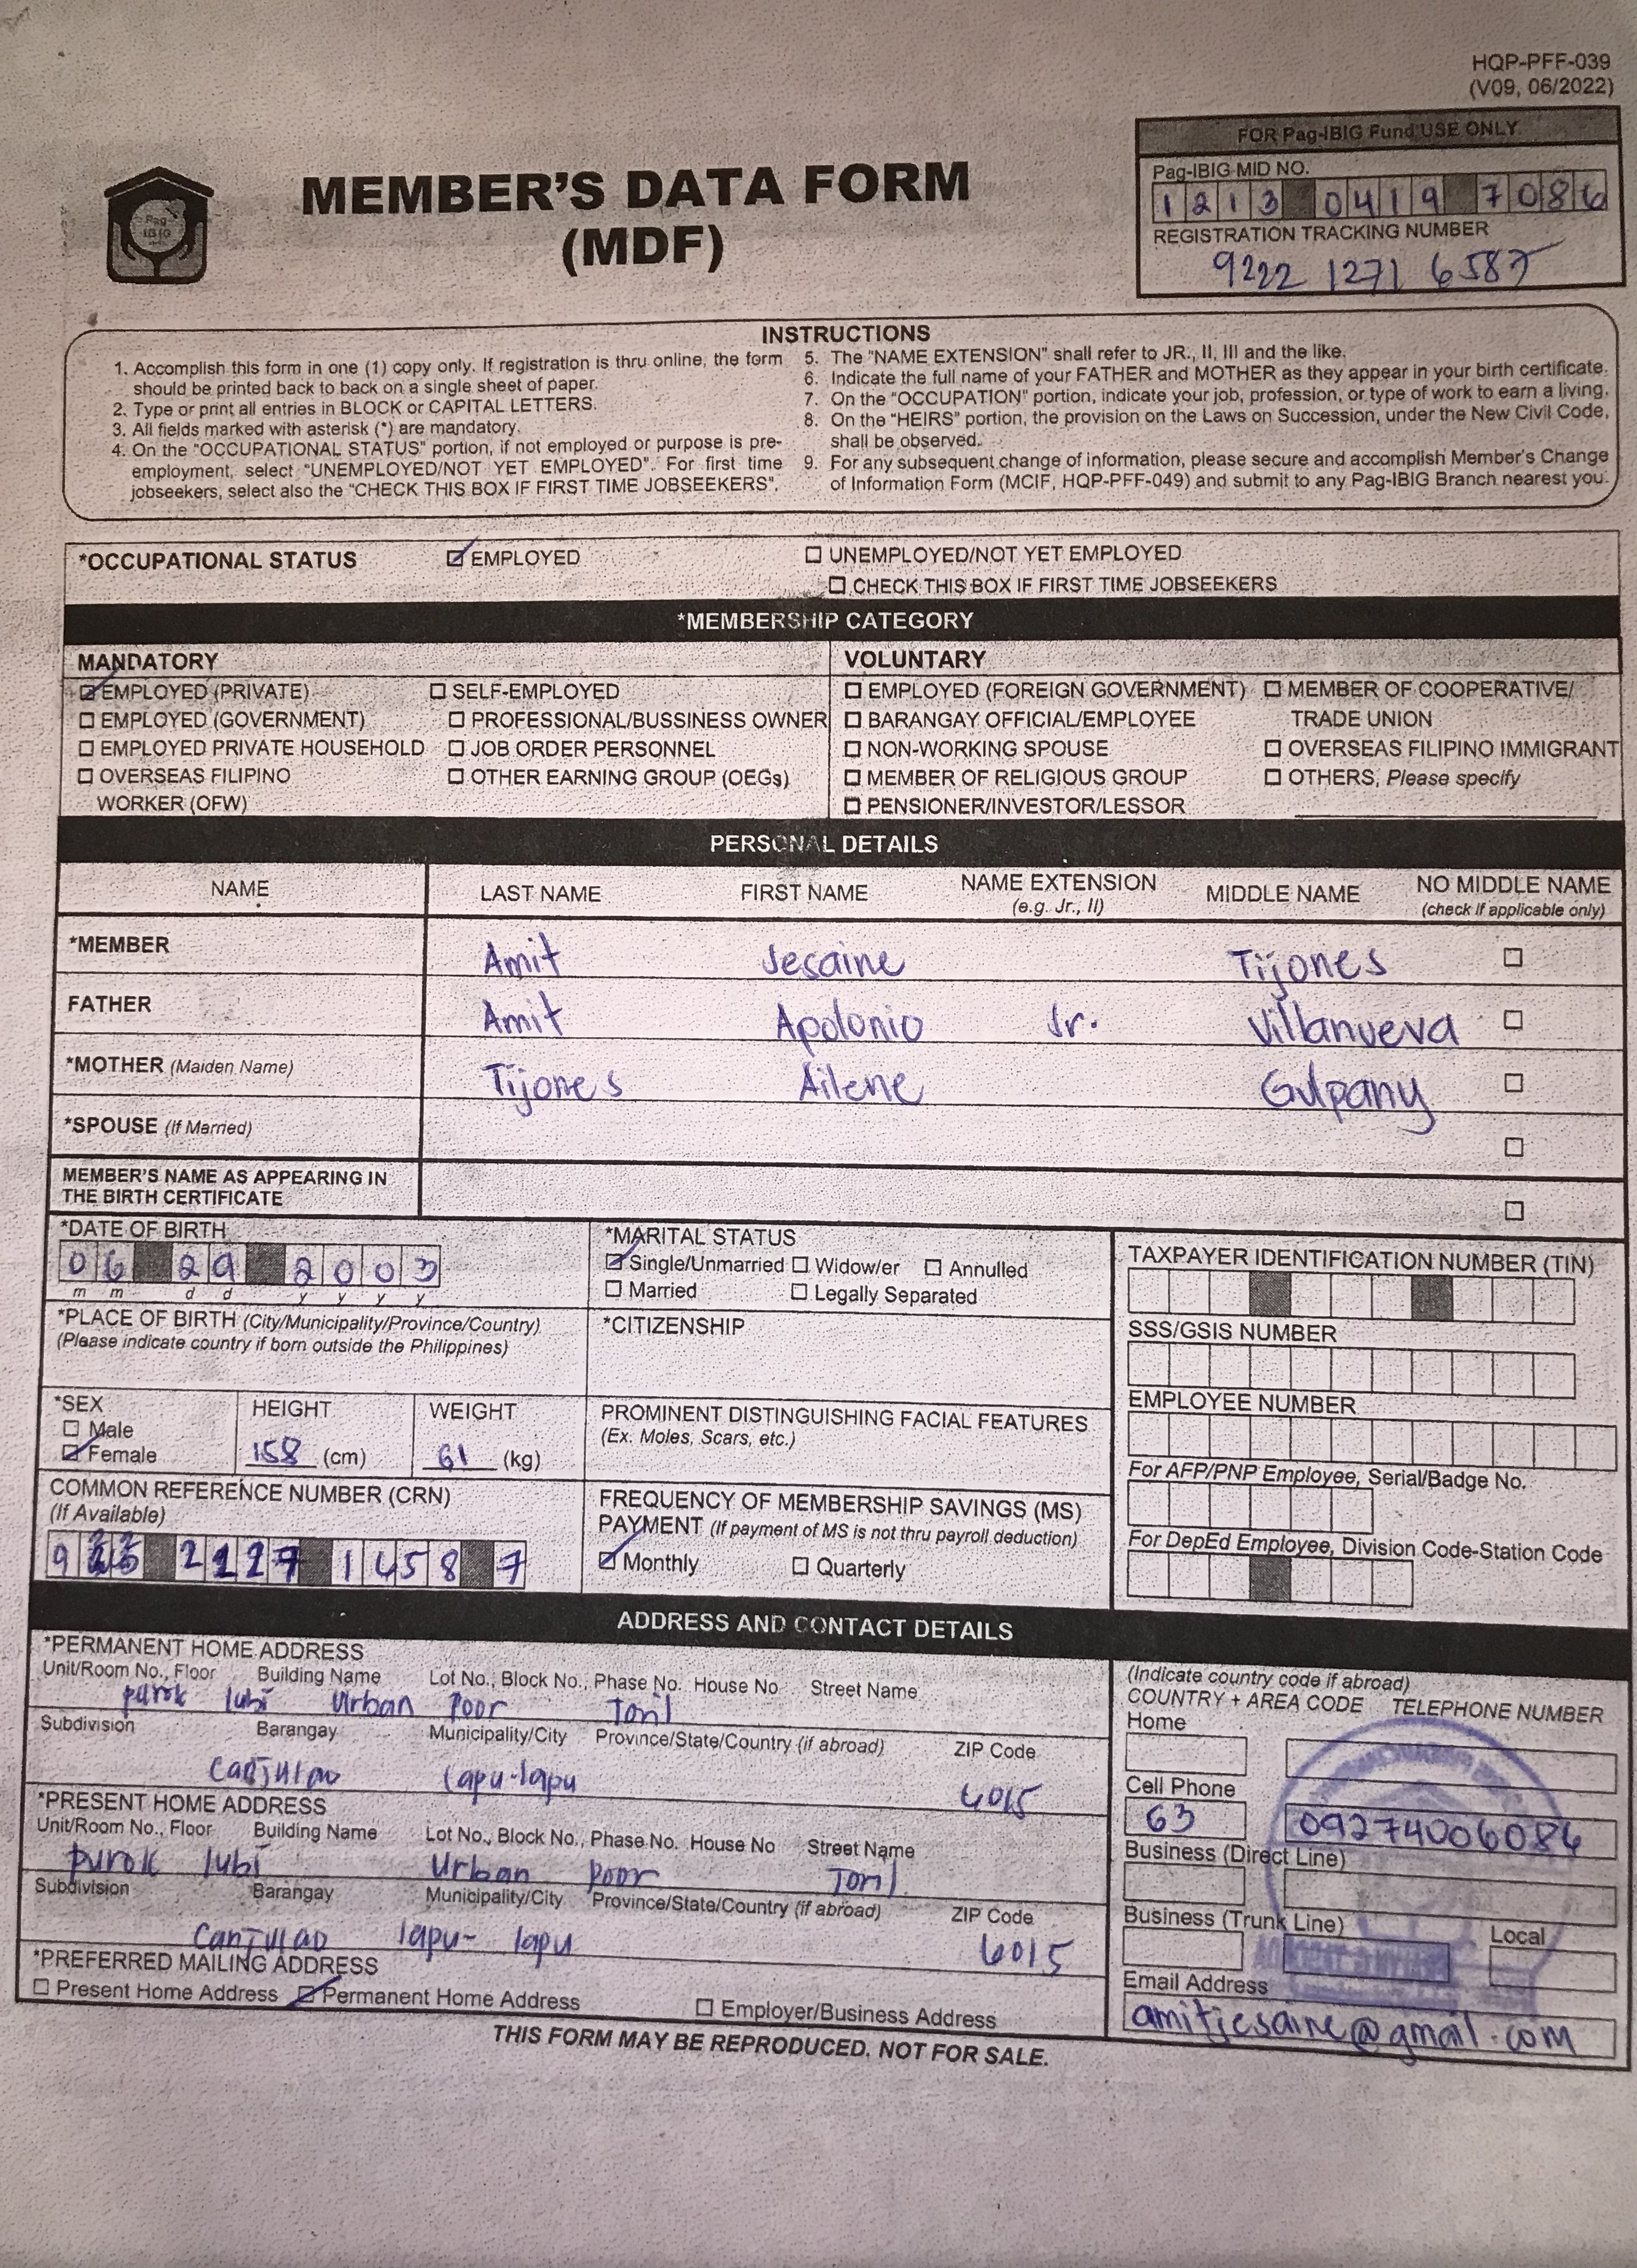 HQP-PFF-039
(V09, 06/2022)
FOR Pag-IBIG Fund USE ONLY
Pag-IBIG MID NO.
1213 0419 7086
REGISTRATION TRACKING NUMBER
9222 1271 6587
Pag
IBIG
MEMBER'S DATA FORM
(MDF)
INSTRUCTIONS
1. Accomplish this form in one (1) copy only. If registration is thru online, the form
should be printed back to back on a single sheet of paper.
2. Type or print all entries in BLOCK or CAPITAL LETTERS.
3. All fields marked with asterisk (*) are mandatory.
4. On the "OCCUPATIONAL STATUS" portion, if not employed or purpose is pre-
employment, select "UNEMPLOYED/NOT YET EMPLOYED". For first time
jobseekers, select also the "CHECK THIS BOX IF FIRST TIME JOBSEEKERS".
5. The "NAME EXTENSION" shall refer to JR., II, III and the like.
6. Indicate the full name of your FATHER and MOTHER as they appear in your birth certificate.
7. On the "OCCUPATION" portion, indicate your job, profession, or type of work to earn a living.
8. On the "HEIRS" portion, the provision on the Laws on Succession, under the New Civil Code,
shall be observed.
9. For any subsequent change of information, please secure and accomplish Member's Change
of Information Form (MCIF, HQP-PFF-049) and submit to any Pag-IBIG Branch nearest you.
*OCCUPATIONAL STATUS ☑ EMPLOYED ☐ UNEMPLOYED/NOT YET EMPLOYED
☐ CHECK THIS BOX IF FIRST TIME JOBSEEKERS
*MEMBERSHIP CATEGORY
MANDATORY
☑ EMPLOYED (PRIVATE) ☐ SELF-EMPLOYED
☐ EMPLOYED (GOVERNMENT) ☐ PROFESSIONAL/BUSSINESS OWNER
☐ EMPLOYED PRIVATE HOUSEHOLD ☐ JOB ORDER PERSONNEL
☐ OVERSEAS FILIPINO ☐ OTHER EARNING GROUP (OEGs)
WORKER (OFW)
VOLUNTARY
☐ EMPLOYED (FOREIGN GOVERNMENT) ☐ MEMBER OF COOPERATIVE/
☐ BARANGAY OFFICIAL/EMPLOYEE TRADE UNION
☐ NON-WORKING SPOUSE ☐ OVERSEAS FILIPINO IMMIGRANT
☐ MEMBER OF RELIGIOUS GROUP ☐ OTHERS, Please specify
☐ PENSIONER/INVESTOR/LESSOR
PERSONAL DETAILS
NAME LAST NAME FIRST NAME NAME EXTENSION (e.g. Jr., II) MIDDLE NAME NO MIDDLE NAME (check if applicable only)
*MEMBER Amit Jesaine Tijones ☐
FATHER Amit Apolonio Jr. Villanueva ☐
*MOTHER (Maiden Name) Tijones Ailene Gulpany ☐
*SPOUSE (If Married) ☐
MEMBER'S NAME AS APPEARING IN
THE BIRTH CERTIFICATE ☐
*DATE OF BIRTH
06 29 2003
m m d d y y y y
*PLACE OF BIRTH (City/Municipality/Province/Country)
(Please indicate country if born outside the Philippines)
*MARITAL STATUS
☑ Single/Unmarried ☐ Widow/er ☐ Annulled
☐ Married ☐ Legally Separated
*CITIZENSHIP
TAXPAYER IDENTIFICATION NUMBER (TIN)
SSS/GSIS NUMBER
EMPLOYEE NUMBER
For AFP/PNP Employee, Serial/Badge No.
For DepEd Employee, Division Code-Station Code
*SEX
☐ Male
☑ Female
HEIGHT
158 (cm)
WEIGHT
61 (kg)
PROMINENT DISTINGUISHING FACIAL FEATURES
(Ex. Moles, Scars, etc.)
COMMON REFERENCE NUMBER (CRN)
(If Available)
2127 1458 7
FREQUENCY OF MEMBERSHIP SAVINGS (MS)
PAYMENT (If payment of MS is not thru payroll deduction)
☑ Monthly ☐ Quarterly
ADDRESS AND CONTACT DETAILS
*PERMANENT HOME ADDRESS
Unit/Room No., Floor Building Name Lot No., Block No., Phase No. House No Street Name
purok lubi Urban Poor Toril
Subdivision Barangay Municipality/City Province/State/Country (if abroad) ZIP Code
canjulao lapu-lapu 6015
*PRESENT HOME ADDRESS
Unit/Room No., Floor Building Name Lot No., Block No., Phase No. House No Street Name
purok lubi Urban poor Toril
Subdivision Barangay Municipality/City Province/State/Country (if abroad) ZIP Code
canjulao lapu- lapu 6015
*PREFERRED MAILING ADDRESS
☐ Present Home Address ☑ Permanent Home Address ☐ Employer/Business Address
(Indicate country code if abroad)
COUNTRY + AREA CODE TELEPHONE NUMBER
Home
Cell Phone
63 09274006086
Business (Direct Line)
Business (Trunk Line) Local
Email Address
amitjesaine@gmail.com
THIS FORM MAY BE REPRODUCED. NOT FOR SALE.